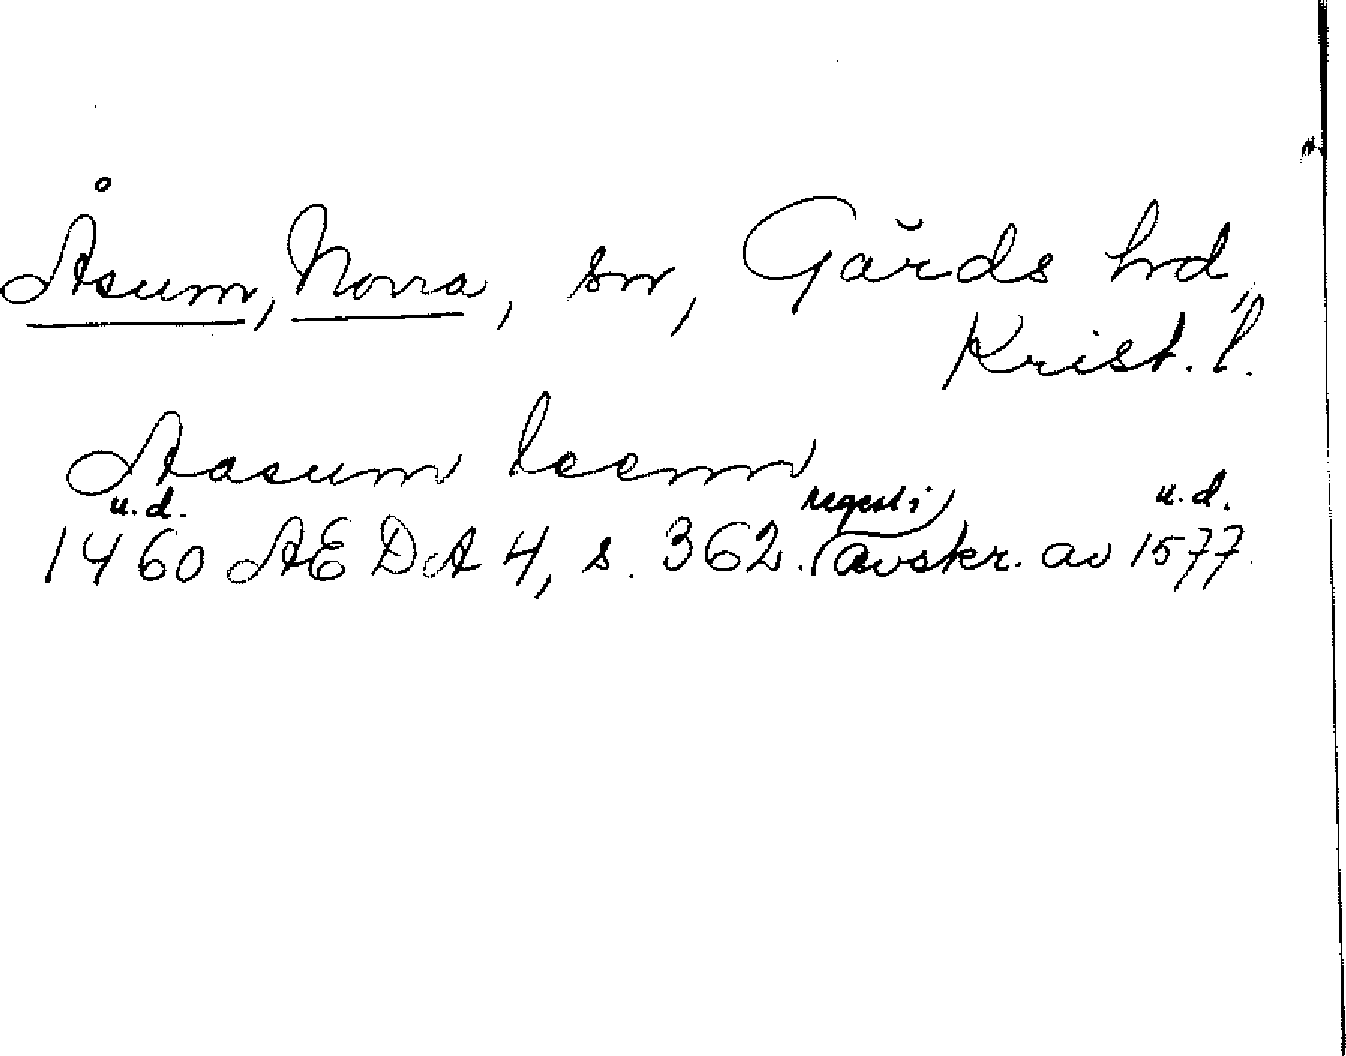 Åsum, Norra, sn, Gärds hd,
Krist. l.
Aasum leenn
u.d. regest i u.d.
1460 AEDA 4, s. 362. (avskr. av 1577.